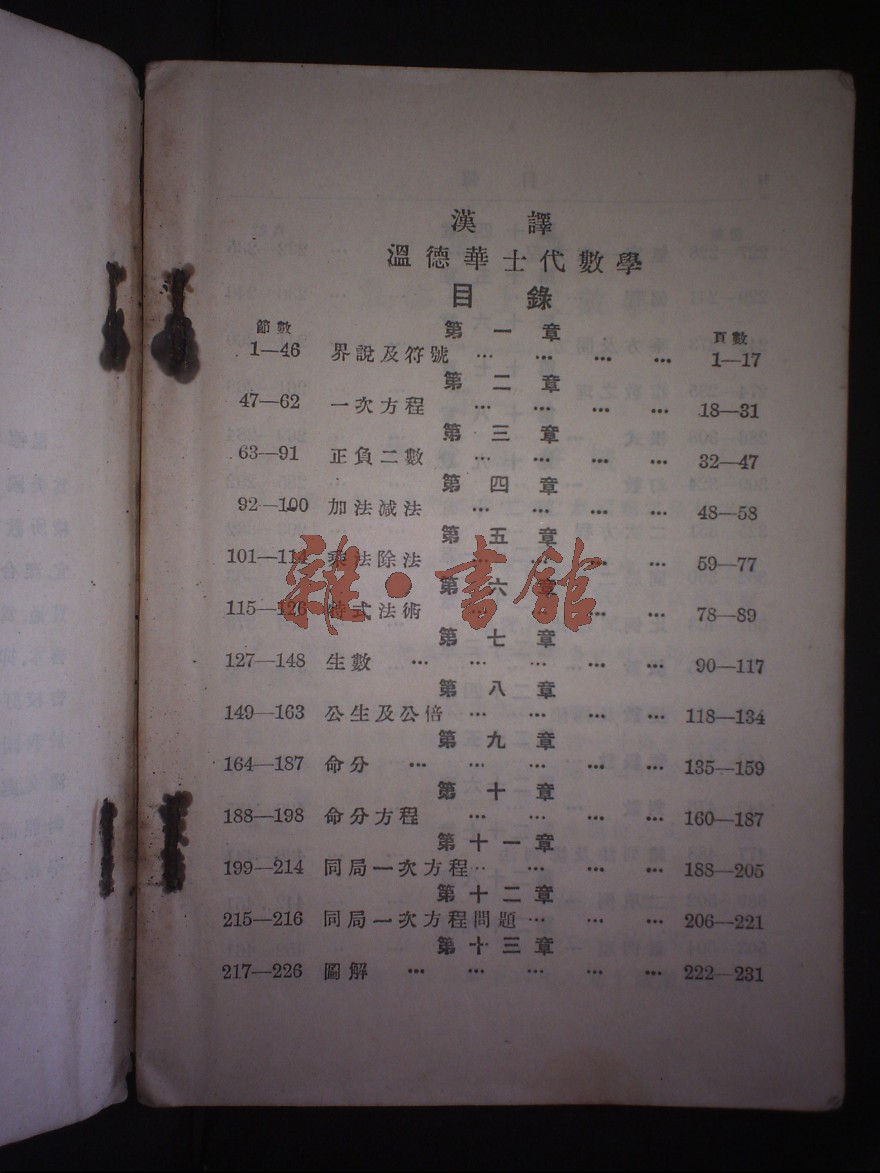 漢 譯
溫德華士代數學
目 錄
節數 頁數
第一章
1—46 界說及符號 … … … … 1—17
第二章
47—62 一次方程 … … … … 18—31
第三章
63—91 正負二數 … … … … 32—47
第四章
92—100 加法減法 … … … … 48—58
第五章
101—114 乘法除法 … … … … 59—77
第六章
115—126 特式法術 … … … … 78—89
第七章
127—148 生數 … … … … … 90—117
第八章
149—163 公生及公倍 … … … … 118—134
第九章
164—187 命分 … … … … … 135—159
第十章
188—198 命分方程 … … … … 160—187
第十一章
199—214 同局一次方程 … … … … 188—205
第十二章
215—216 同局一次方程問題 … … … 206—221
第十三章
217—226 圖解 … … … … … 222—231
雜·書館